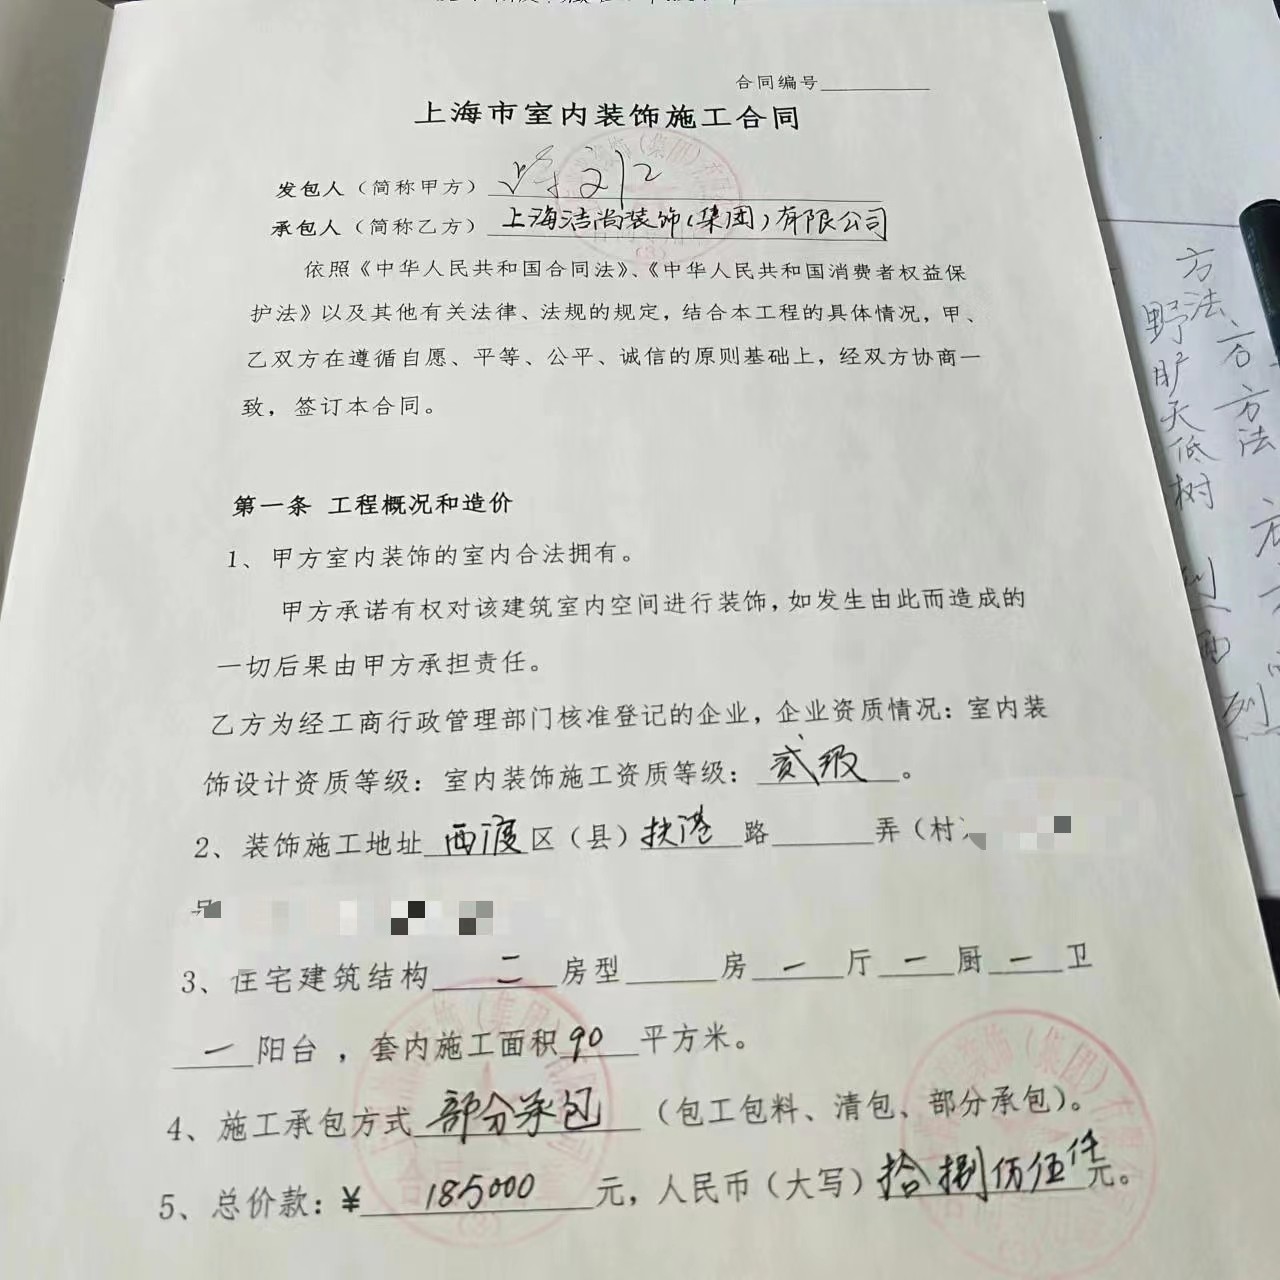 合同编号
上海市室内装饰施工合同
发包人（简称甲方）
承包人（简称乙方）上海洁尚装饰(集团)有限公司
依照《中华人民共和国合同法》、《中华人民共和国消费者权益保
护法》以及其他有关法律、法规的规定，结合本工程的具体情况，甲、
乙双方在遵循自愿、平等、公平、诚信的原则基础上，经双方协商一
致，签订本合同。
第一条 工程概况和造价
1、甲方室内装饰的室内合法拥有。
甲方承诺有权对该建筑室内空间进行装饰，如发生由此而造成的
一切后果由甲方承担责任。
乙方为经工商行政管理部门核准登记的企业，企业资质情况：室内装
饰设计资质等级：室内装饰施工资质等级：贰级。
2、装饰施工地址西渡区（县）扶港路 弄（村）
号
3、住宅建筑结构 二 房型 房 一 厅 一 厨 一 卫
一 阳台 ，套内施工面积 90 平方米。
4、施工承包方式 部分承包 （包工包料、清包、部分承包）。
5、总价款：¥ 185000 元，人民币（大写）拾捌佰伍仟元。
方法 方 方法
野旷天低树